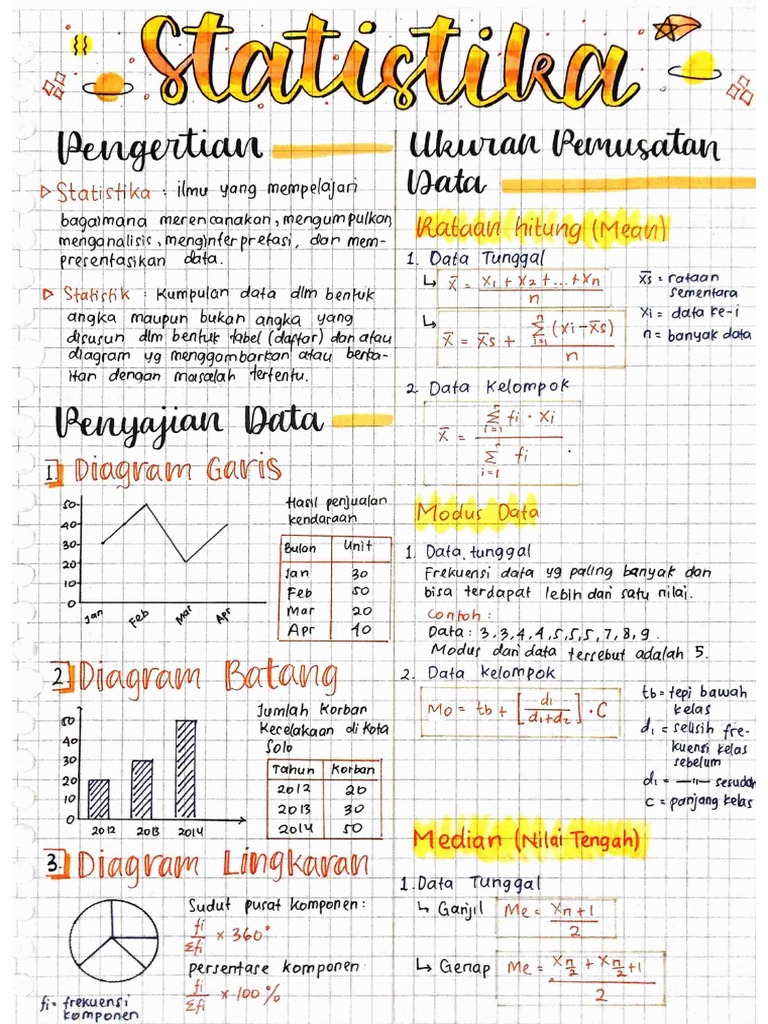 Statistika
Pengertian
▷ Statistika : ilmu yang mempelajari
bagaimana merencanakan, mengumpulkan,
menganalisis, menginterpretasi, dan mem-
presentasikan data.
▷ Statistik : Kumpulan data dlm bentuk
angka maupun bukan angka yang
disusun dlm bentuk tabel (daftar) dan atau
diagram yg menggambarkan atau berka-
itan dengan masalah tertentu.
Penyajian Data
1. Diagram Garis
50
40
30
20
10
0
Jan Feb Mar Apr
Hasil penjualan
kendaraan
Bulan Unit
Jan 30
Feb 50
Mar 20
Apr 40
2. Diagram Batang
50
40
30
20
10
0
2012 2013 2014
Jumlah Korban
Kecelakaan di Kota
Solo
Tahun Korban
2012 20
2013 30
2014 50
3. Diagram Lingkaran
Sudut pusat komponen:
fi/Σfi × 360°
persentase komponen:
fi/Σfi × 100%
fi = frekuensi
komponen
Ukuran Pemusatan
Data
Rataan hitung (Mean)
1. Data Tunggal
↳ x̄ = x1 + x2 + ... + xn / n
↳ x̄ = x̄s + Σ i=1 n (xi - x̄s) / n
x̄s = rataan
sementara
xi = data ke-i
n = banyak data
2. Data Kelompok
x̄ = Σ i=1 n fi · xi / Σ i=1 n fi
Modus Data
1. Data tunggal
Frekuensi data yg paling banyak dan
bisa terdapat lebih dari satu nilai.
Contoh :
Data : 3,3,4,4,5,5,5,7,8,9.
Modus dari data tersebut adalah 5.
2. Data kelompok
Mo = tb + [d1 / d1+d2] · C
tb = tepi bawah
kelas
d1 = selisih fre-
kuensi kelas
sebelum
d1 = —〃— sesudah
C = panjang kelas
Median (Nilai Tengah)
1. Data Tunggal
↳ Ganjil Me = Xn+1 / 2
↳ Genap Me = X n/2 + X n/2 +1 / 2